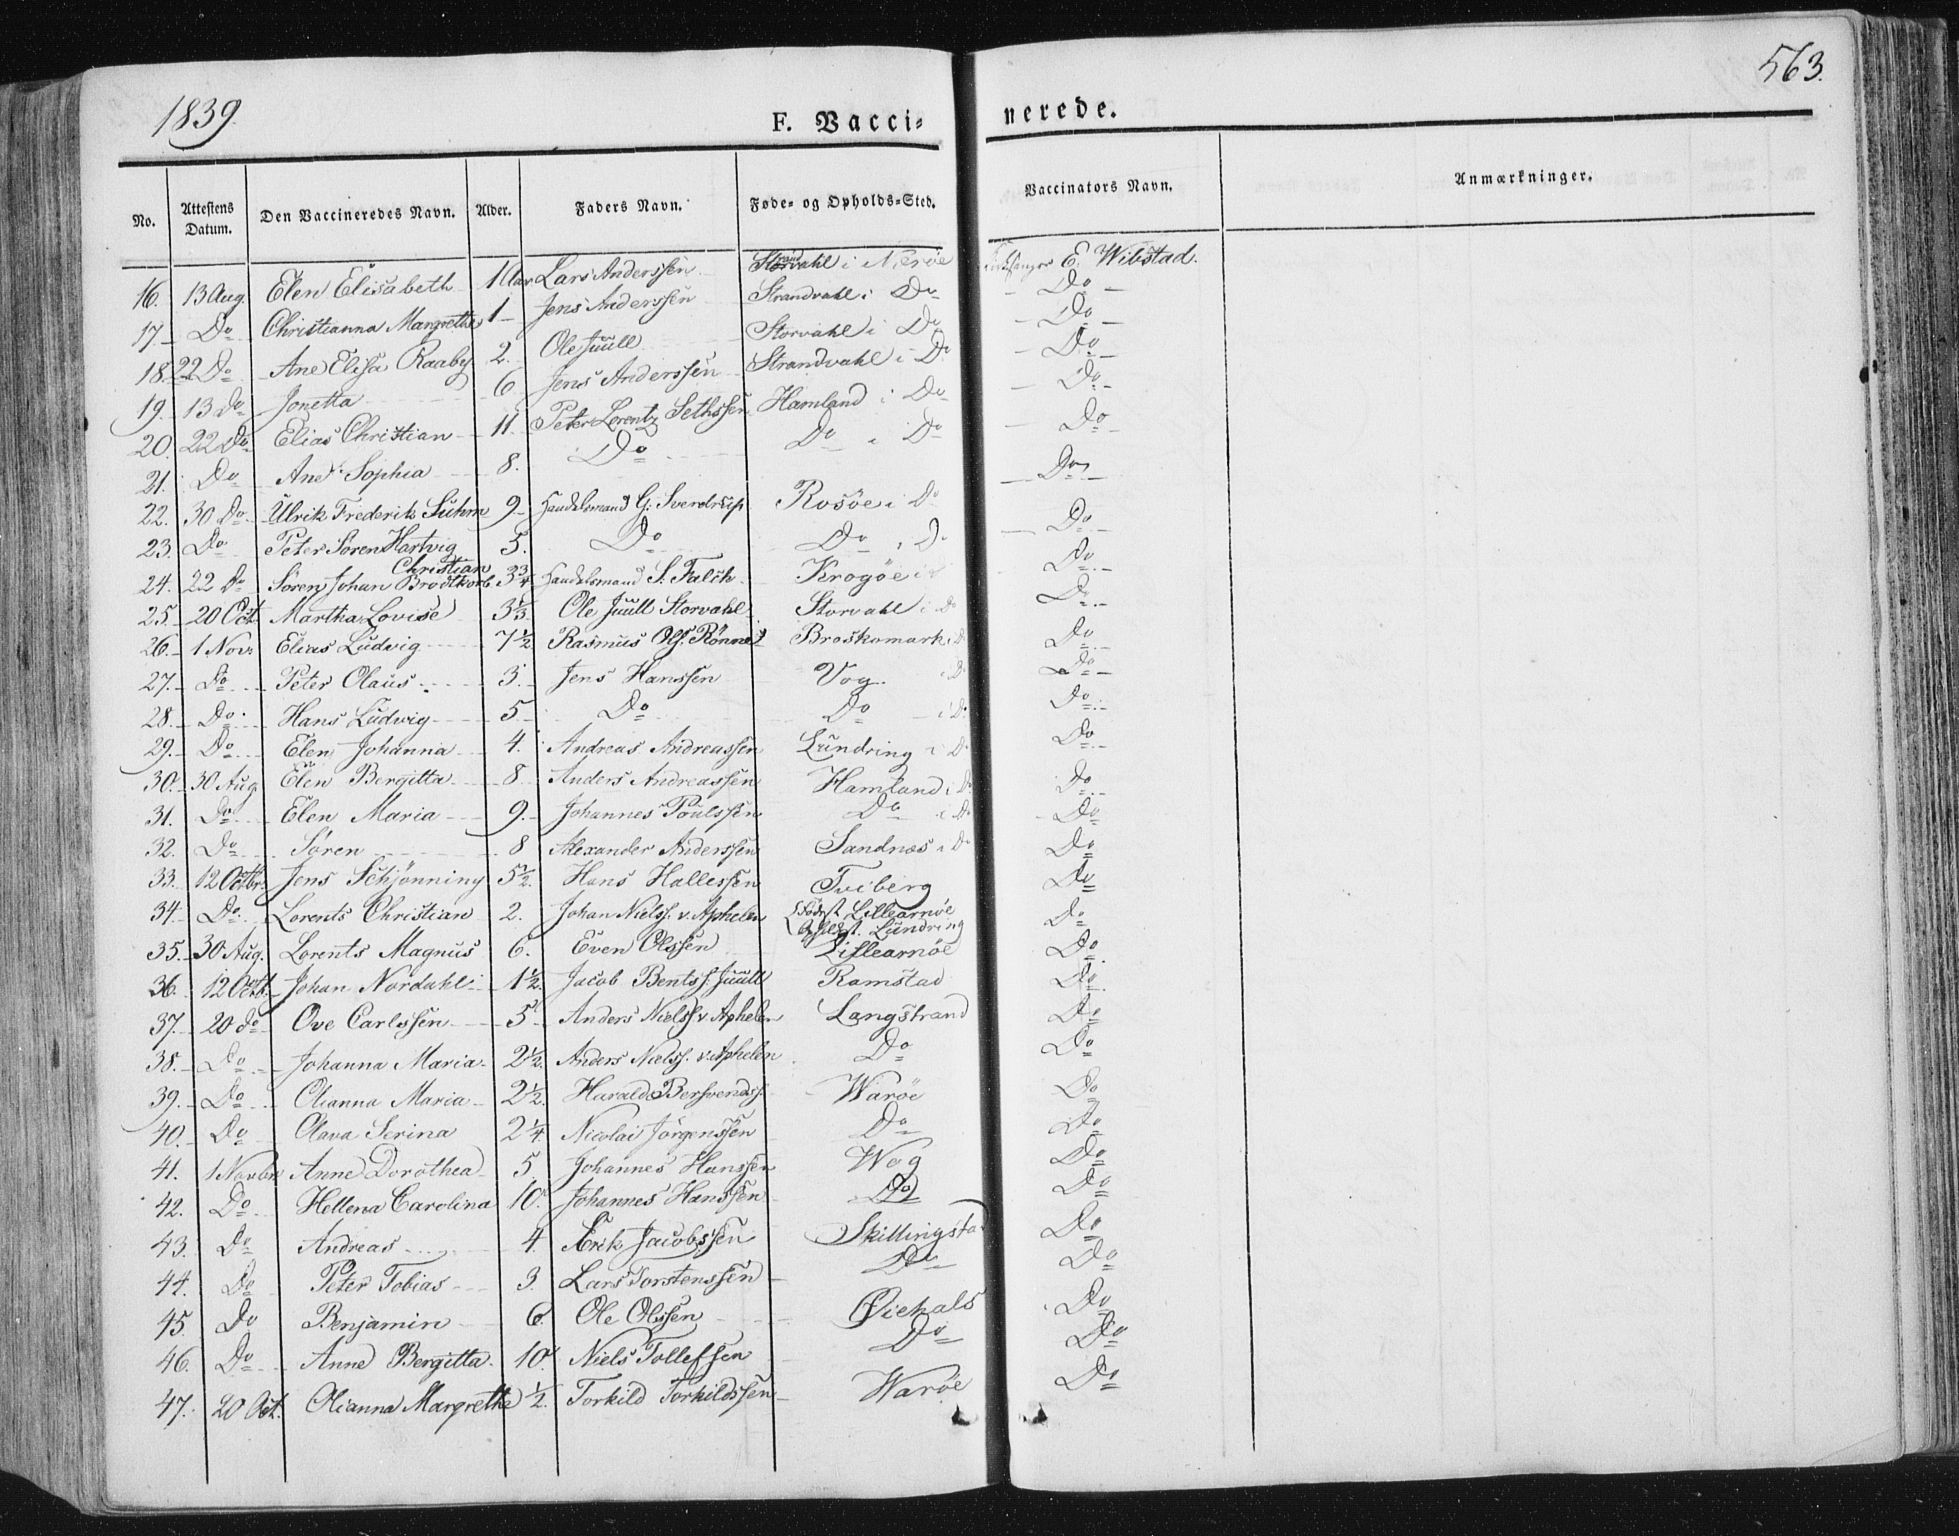 1839
563.
F. Vacci= nerede.
No. Attestens Datum. Den Vaccineredes Navn. Alder. Faders Navn. Føde- og Opholds-Sted. Vaccinators Navn. Anmærkninger.
16. 13 Aug. Elen Elisabeth 1 Aar Lars Anderssen Strandvahl i Nærøe Kirksanger E. Wibstad.
17. Do Christianna Margrethe 1 Jens Anderssen Strandvahl i Do Do
18. 22 Do Ane Elisa Raaby 2. Ole Juull Storvahl i Do Do
19. 13 Do Jonetta 6 Jens Anderssen Strandvahl i Do Do
20. 22 Do Elias Christian 11. Peter Lorentz Sethssen Hamland i Do Do
21. Do Ane Sophia 8. Do Do i Do Do
22. 30 Do Ulrik Frederik Suhm 9 Handelsmand G. Sverdrup Rosøe i Do Do
23. Do Peter Soren Hartvig 5. Do Do i Do Do
24. 22 Do Søren Johan Christian Brodtkorb 3 3/4 Handelsmand S. Falch Krogøe i Do
25. 20 Oct Martha Lovise 3 1/3 Ole Juull Storvahl Storvahl i Do Do
26. 1 Nov. Elias Ludvig 7 1/2 Rasmus Ols. Rönne Broskomark i D Do
27. Do Peter Olaus 3. Jens Hanssen Vog i Do Do
28. Do Hans Ludwig 5 Do Do i Do Do
29. Do Elen Johanna 4. Andreas Andreassen Lundring i D Do
30. 30 Aug Elen Bergitta 8 Anders Andreassen Hamland i Do Do
31. Do Elen Maria 9. Johannes Poulssen Do i Do Do
32. Do Søren 8 Alexander Anderssen Sandnæs i Do Do
33. 12 Octbr. Jens Schjønning 5 1/2. Hans Hallessen Tviberg Do
34. Do Lorents Christian 2. Johan Nielss. v. Aphelen Født Lillearnøe Lundring Do
35. 30 Aug. Lorents Magnus 6. Even Olssen Lillearnøe Do
36. 12 Octb. Johan Nordahl 1 1/2. Jacob Bentss. Juull Ramstad Do
37. 20 do Ove Carlssen 5 Anders Nielss v. Aphelen Langstrand Do
38. Do Johanna Maria 2 1/2. Anders Nielss. v. Aphelen Do Do
39. Do Olianna Maria 2 1/2. Harald Bersvendss. Warøe Do
40. Do Olava Serina 2 1/4. Nicolai Jörgenssen Do Do
41. 1 Novbr Anne Dorothea 5 Johannes Hanssen Wog Do
42. Do Hellena Carolina 10. Johannes Hanssen Do Do
43. Do Andreas 4. Erik Jacobssen Skillingsta Do
44. Do Peter Tobias 3. Lars Torstenssen Do Do
45. Do Benjamin 6. Ole Olssen Qviehals Do
46. Do Anne Bergitta 10. Niels Tollefsen Do Do
47. 20 Oct. Olianna Margrethe 1/2. Torkild Torkildssen Warøe Do